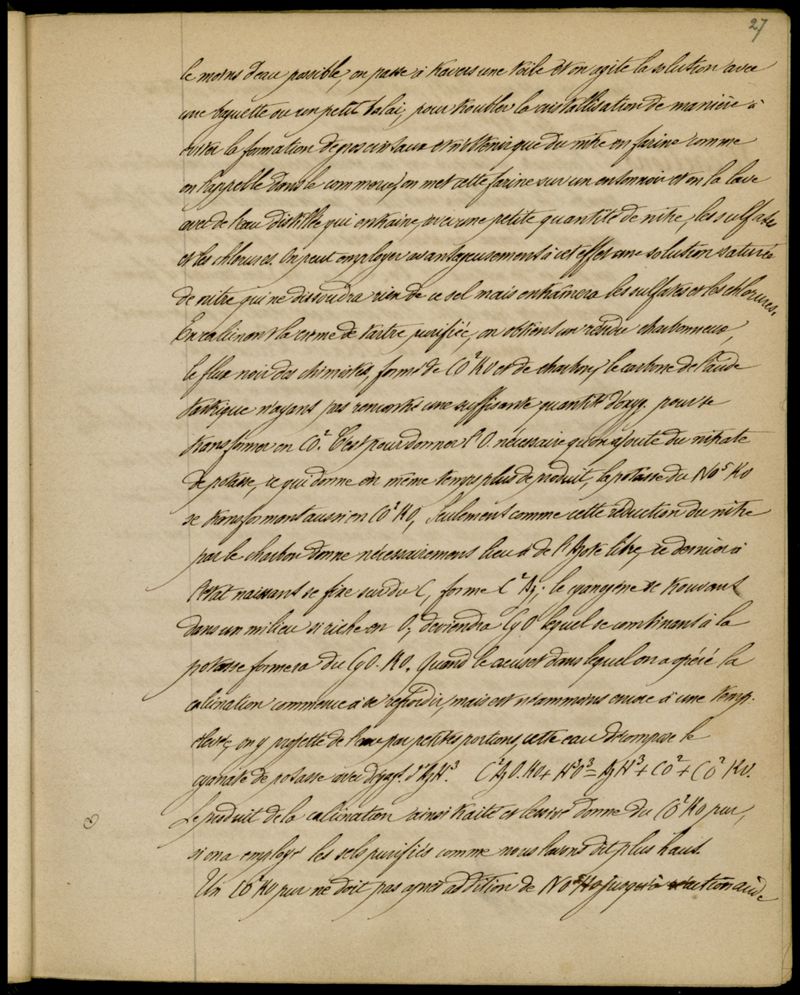 27
le moins d'eau possible, on passe à travers une toile et on agite la solution avec
une baguette ou un petit balai, pour troubler la cristallisation de manière à
éviter la formation de gros cristaux et n'obtenir que du nitre en farine comme
on l'appelle dans le commerce, on met cette farine sur un entonnoir et on la lave
avec de l'eau distillée qui entraîne, avec une petite quantité de nitre, les sulfates
et les chlorures. On peut employer avantageusement à cet effet une solution saturée
de nitre qui ne dissoudra rien de ce sel mais entraînera les sulfates et les chlorures.
En calcinant la crème de tartre purifiée, on obtient un résidu charbonneux,
le flux noir des chimistes, formé de CO²KO et de charbon, le carbone de l'acide
tartrique n'ayant pas rencontré une suffisante quantité d'oxyg. pour se
transformer en CO². C'est pour donner l'O. nécessaire qu'on ajoute du nitrate
de potasse, ce qui donne en même temps plus de produit, la potasse du NO⁵KO
se transformant aussi en CO²KO, Seulement comme cette réduction du nitre
par le charbon donne nécessairement lieu à de l'Azote libre, ce dernier à
l'état naissant se fixe sur du C, forme C²Az; le cyanogène se trouvant
dans un milieu si riche en O, deviendra CyO lequel se combinant à la
potasse formera du CyO.KO. Quand le creuset dans lequel on a opéré la
calcination commence à se refroidir, mais est néanmoins encore à une temp.
élevée, on y projette de l'eau par petites portions, cette eau décompose le
cyanate de potasse avec dégagt. d'AzH³. C²AzO.KO + H³O³ = AzH³ + CO² + CO²KO.
Le produit de la calcination ainsi traité et lessivé donne du CO²KO pur,
si on a employé les sels purifiés comme nous l'avons dit plus haut.
Un CO²KO pur ne doit pas après addition de NO⁵HO jusqu'à réaction acide